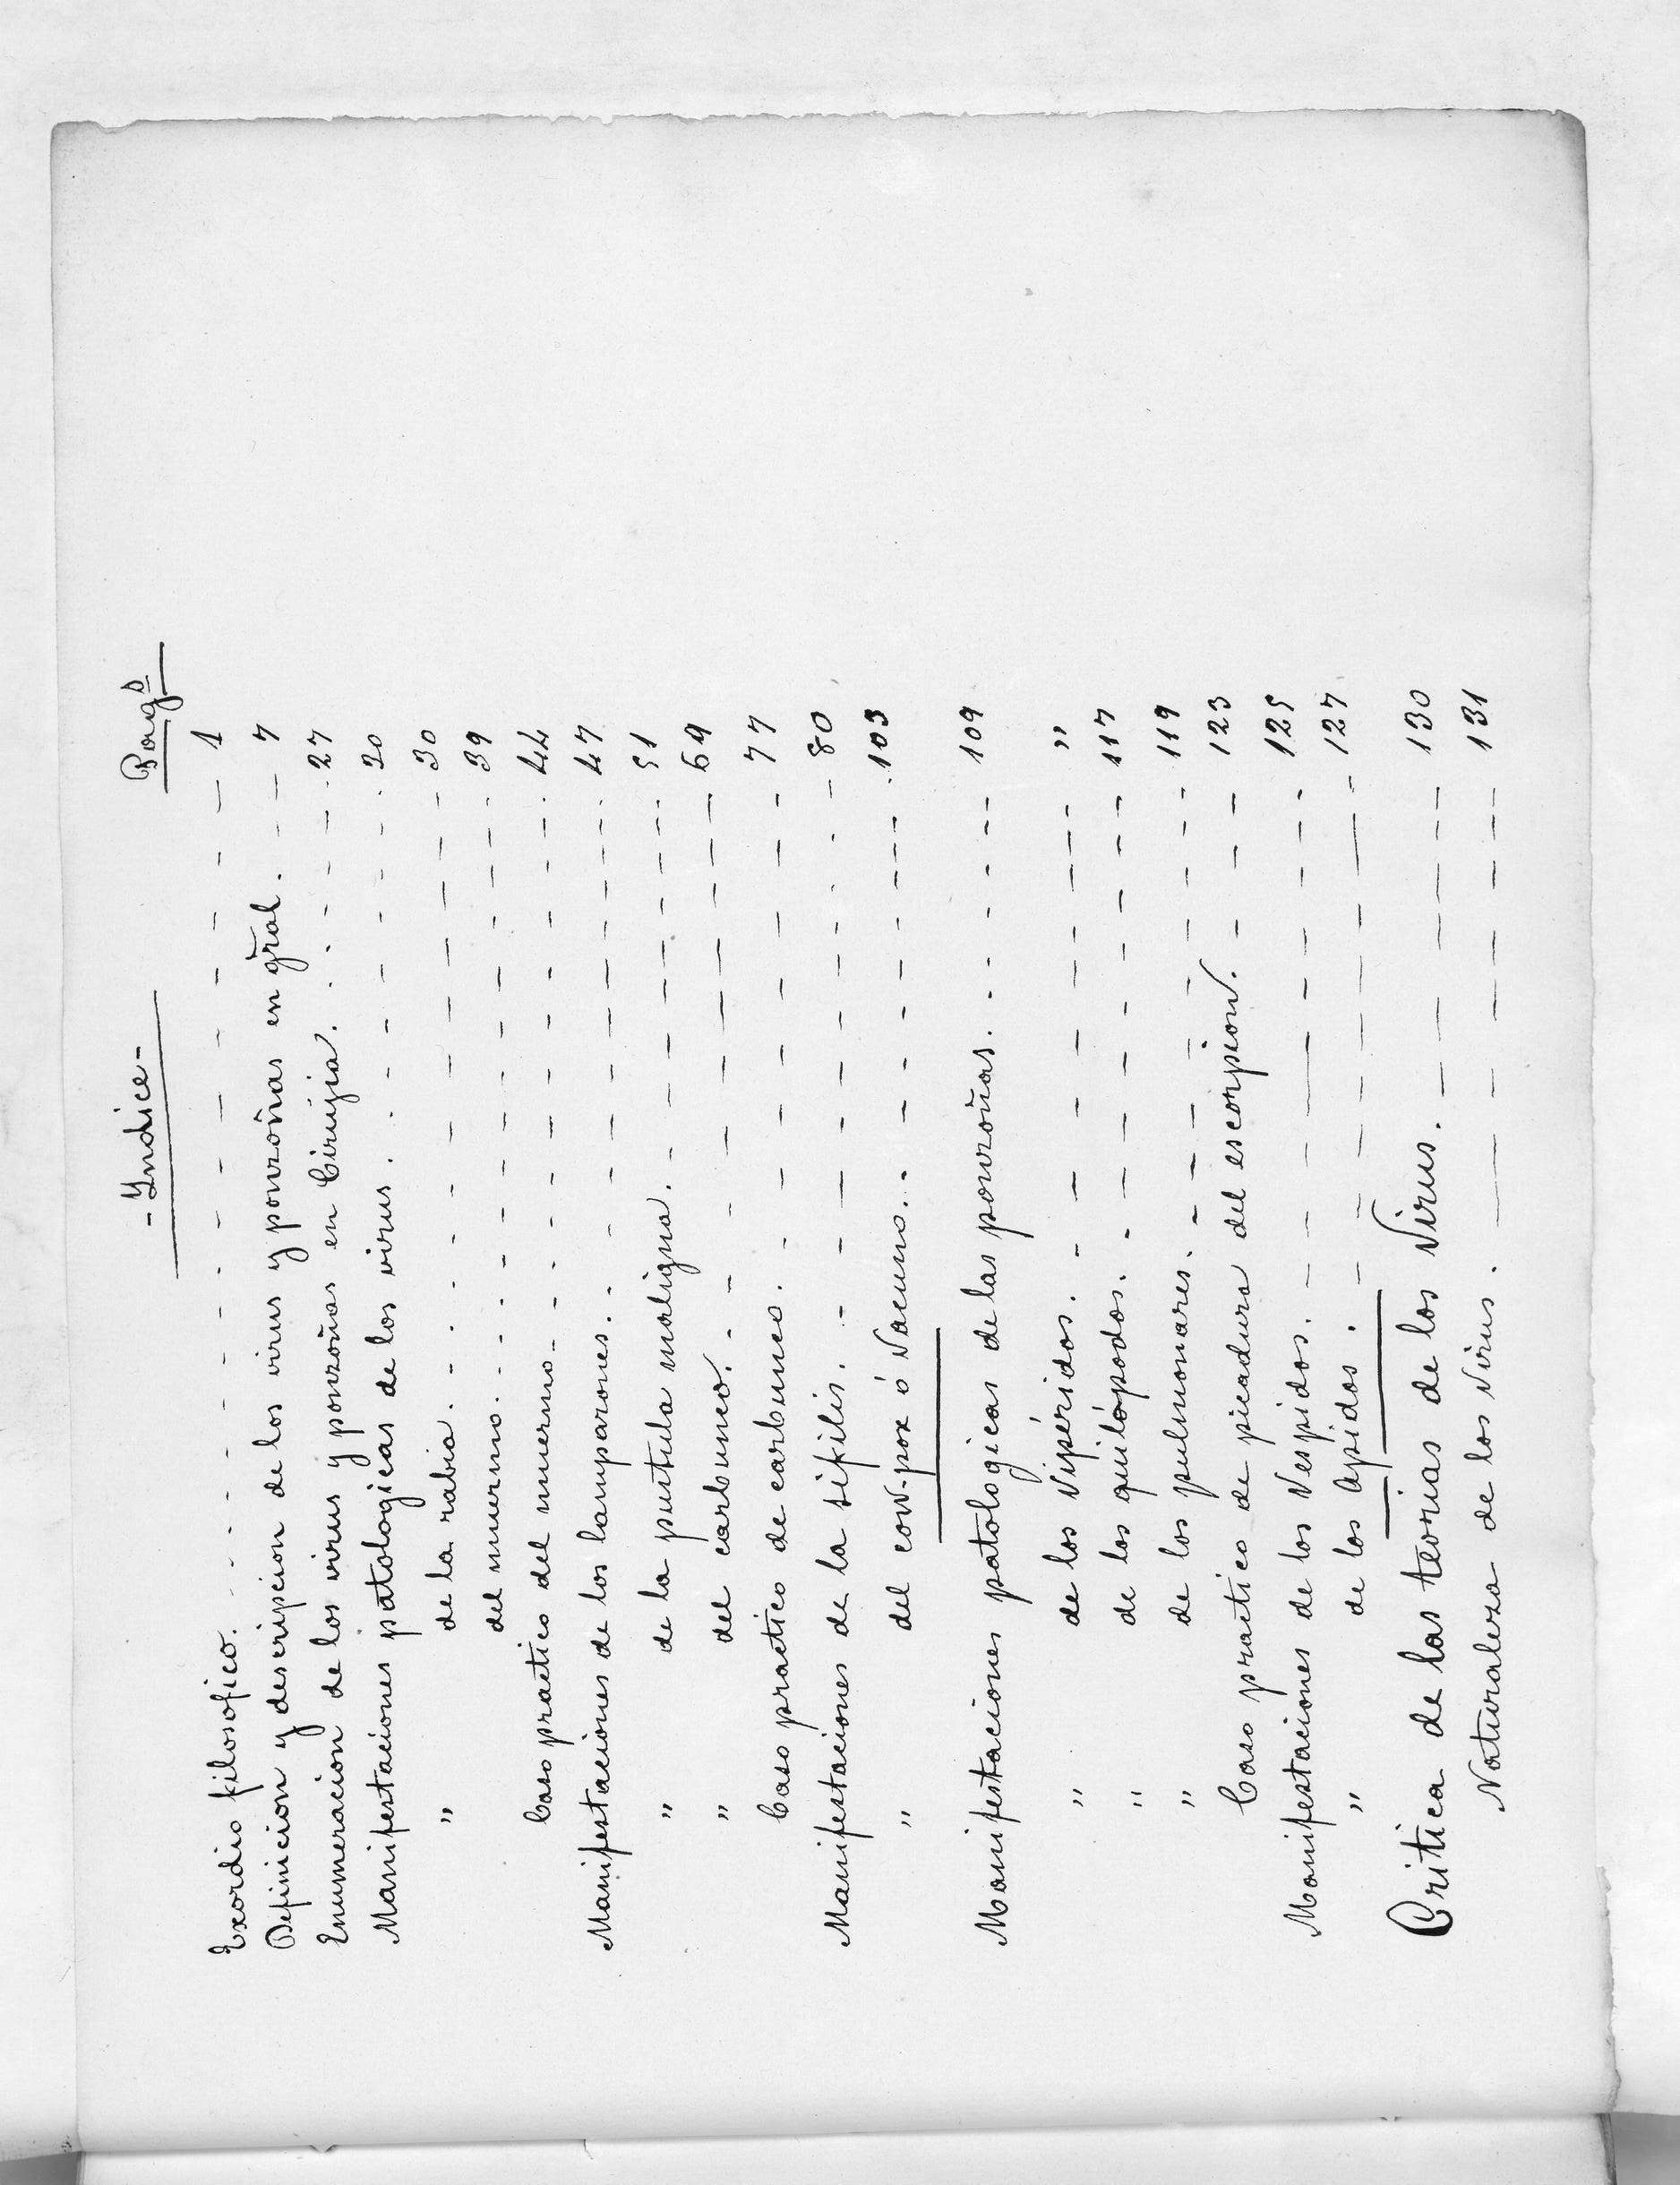 - Yndice -
Pags
Exordio filosofico. 1
Definicion y descripcion de los virus y ponzoñas en gral. 7
Enumeracion de los virus y ponzoñas en Cirujia. 27
Manifestaciones patologicas de los virus. 30
" de la rabia. 30
del muermo. 39
Caso practico del muermo 44
Manifestaciones de los lamparones. 47
" de la pustula maligna. 51
" del carbunco. 69
Caso practico de carbunco. 77
Manifestaciones de la sifilis. 80
" del cow-pox ó Vacuno. 103
Manifestaciones patologicas de las ponzoñas. 109
" de los Vipéridos. "
" de los quilópodos. 117
" de los pulmonares. 119
Caso practico de picadura del escorpion. 123
Manifestaciones de los Vespidos. 125
" de los Apidos. 127
Critica de las teorias de los Virus. 130
Naturaleza de los Virus. 131